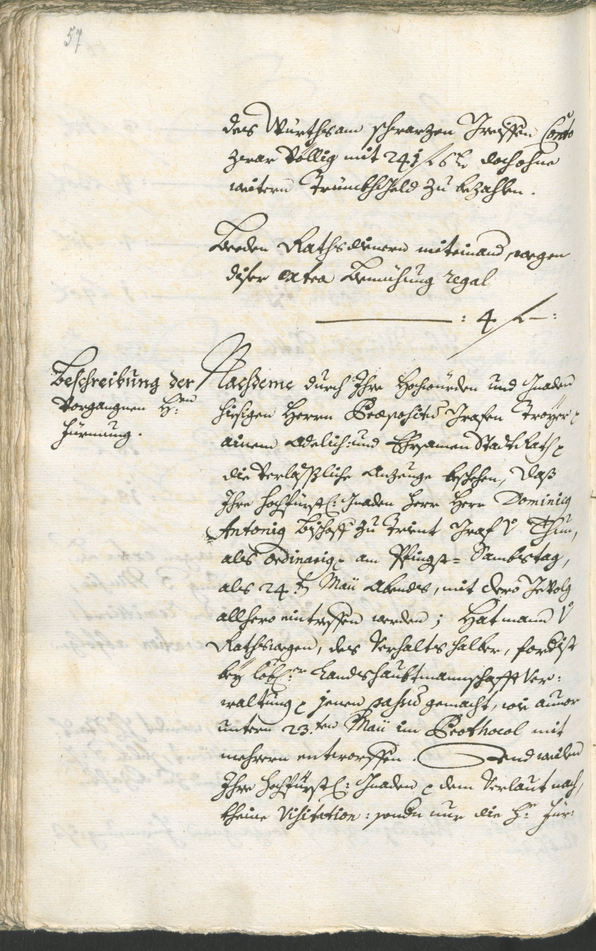 57
des Würthsam schwarzen Greiffen Conto
zwar völlig mit 241 f 5 k doch ohne
weitern Trünkhgeld zu bezahlen.
Beeden Rathsdienern miteinand, wegen
diser extra Bemühung regal
: 4 f — :
Beschreibung der
Vorgangnen H:
Fürmung.
Nachdeme durch Ihre Hochwürden und Gnaden
hiesigen Herrn Præpositus Grafen Troyer
ainem Adelich: und Ehrsamen Stadt Rath
die verläßliche Anzeuge beschehen, daß
Ihre hochfürstl: Gnaden Herr Herr Dominicus
Antonius Bischoff zu Trient Graf v Thun,
als ordinarius am Pfingst= Sambstag,
als 24.ten Maii Abends, mit dero Gevolg
allhero eintreffen werden; Hat man v
Rathswegen, des Verhalts halber, fordist
bey löbl:er Landshaubtmannschafft Ver:
waltung jenen passus gemacht, wie anvor
untern 23.ten Maii im Prothocol mit
mehrern entworffen. Und weilen
Ihre hochfürstl: Gnaden dem Verlaut nach,
kheine Visitation: sondern nur die H: Für: